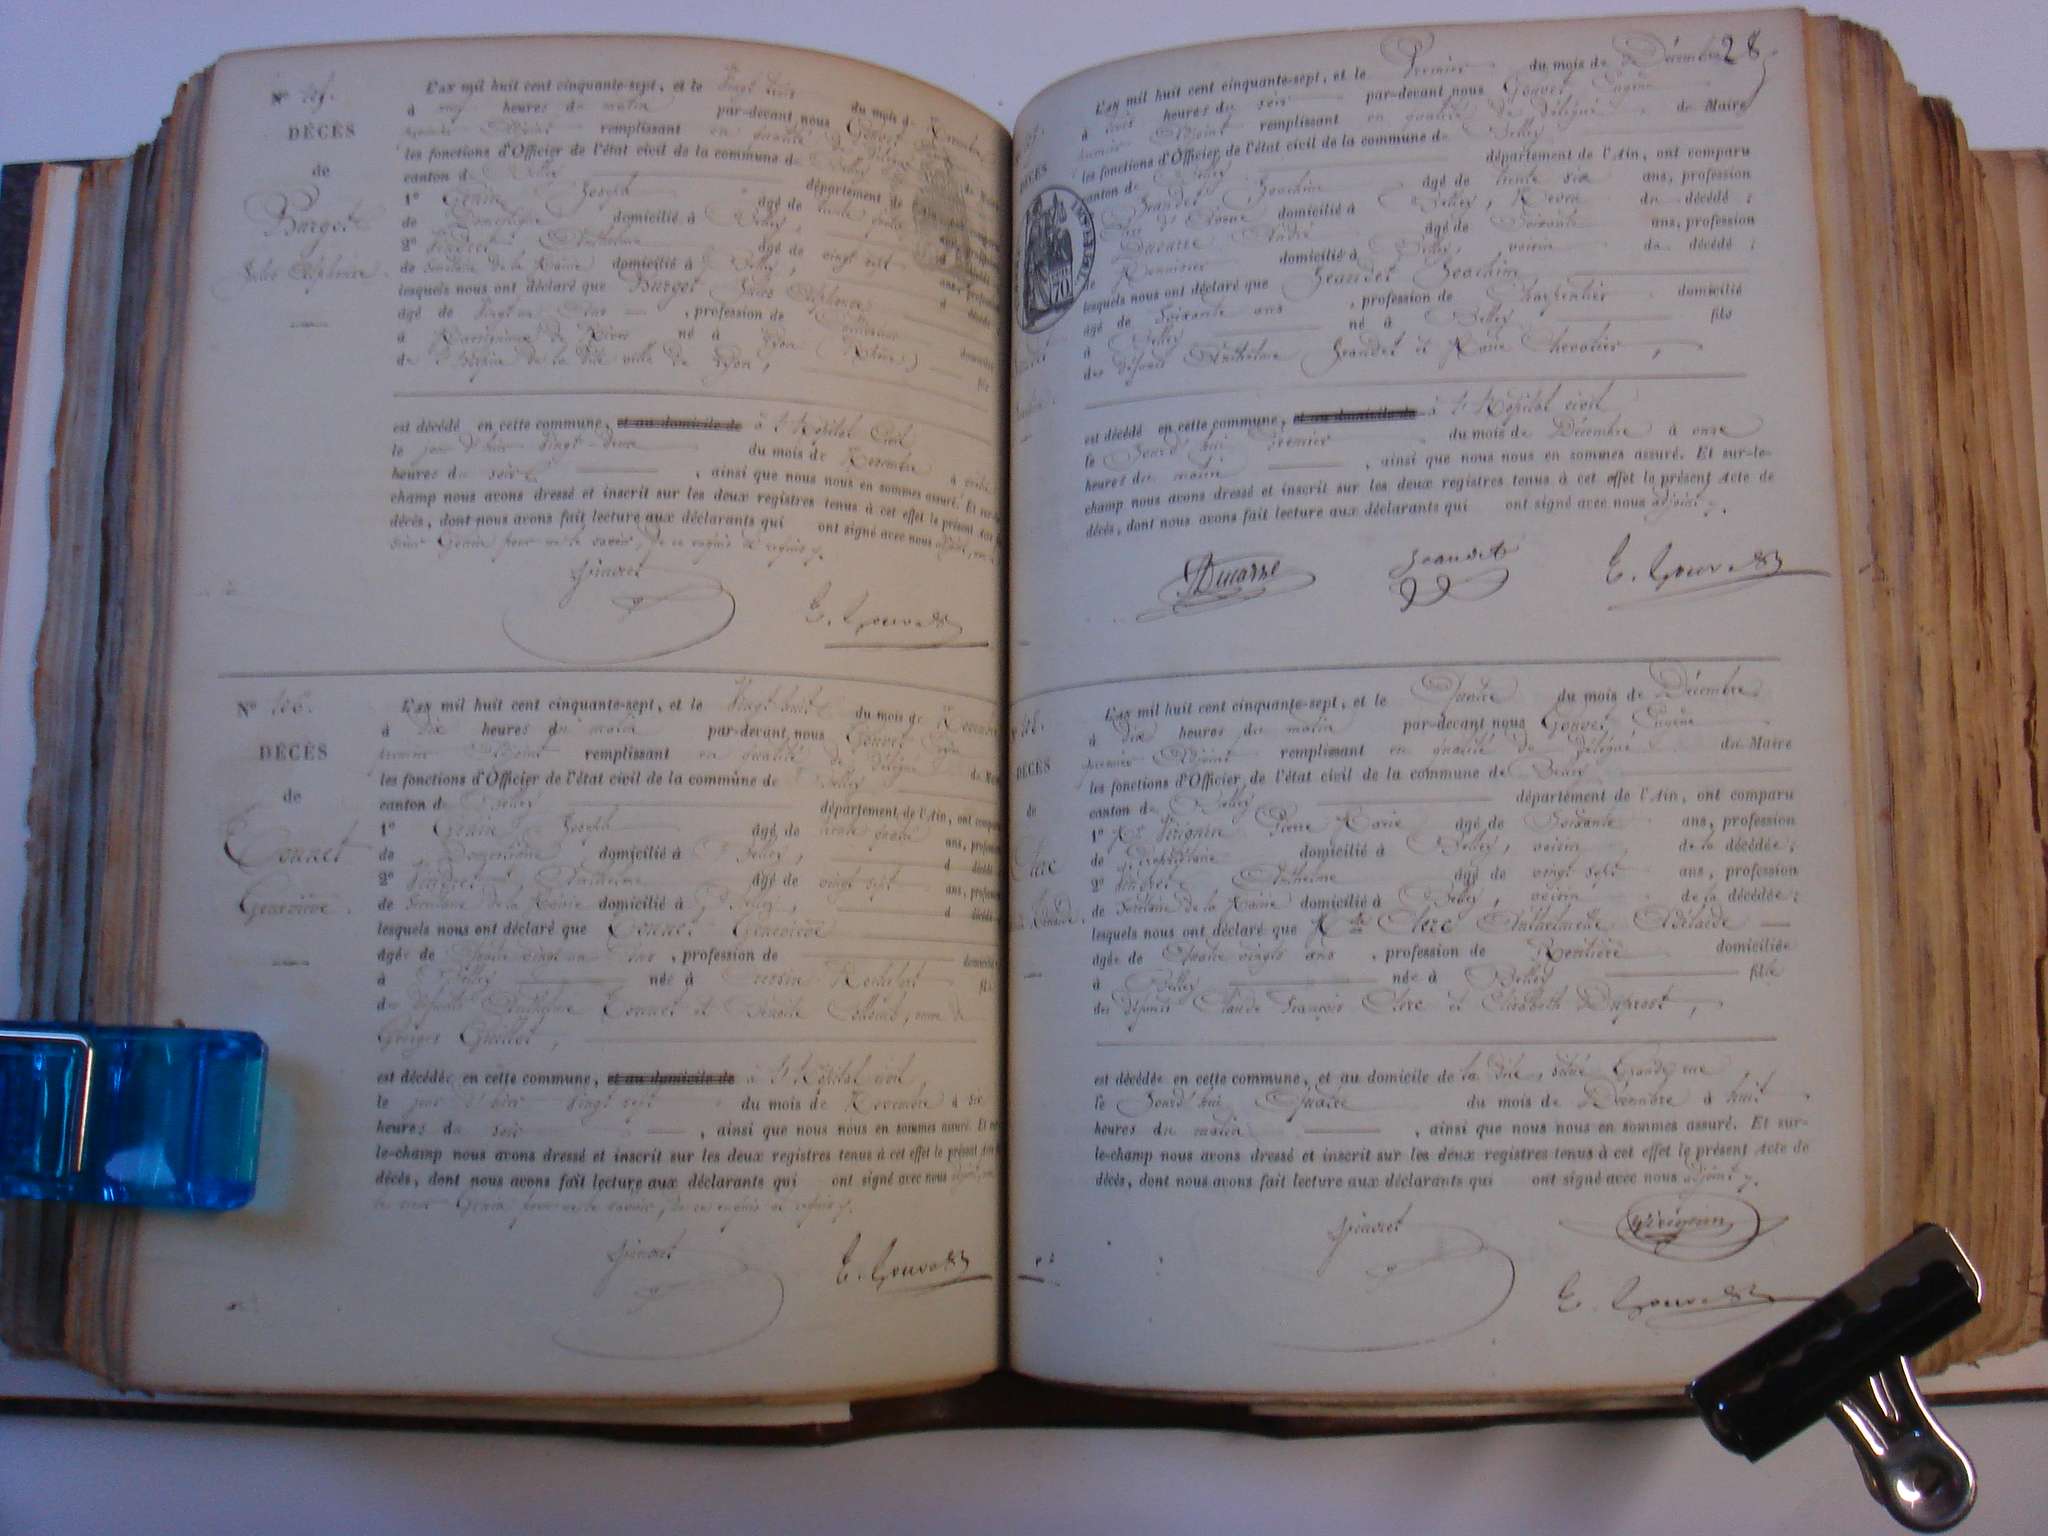 DÉCÈS
de
Burget
Jules Alphonse.
L'an mil huit cent cinquante-sept, et le Vingt trois du mois de
à heures du matin par-devant nous Gouvet
Adjoint remplissant en qualité de Délégué
les fonctions d'Officier de l'état civil de la commune de Belley
canton de Belley département de
1° Genin Joseph âgé de trente quatre
de Domestique domicilié à Belley,
2° Anthelme âgé de vingt sept
de Secrétaire de la Mairie domicilié à Belley,
lesquels nous ont déclaré que Burget Jules Alphonse
âgé de Vingt un Ans, profession de
à né à Lyon (Rhône)
de l'hospice de la dite ville de Lyon,
est décédé en cette commune, et au domicile de à l'Hôpital Civil
le jour d'hier Vingt-deux du mois de Novembre à
heures du soir, ainsi que nous nous en sommes assuré. Et sur-
champ nous avons dressé et inscrit sur les deux registres tenus à cet effet le présent Acte
décès, dont nous avons fait lecture aux déclarants qui ont signé avec nous adjoint,
sieur Genin pour ne le savoir, de ce enquis et requis.
E. Gouvet
N° 106.
DÉCÈS
de
Connet
Geneviève.
L'an mil huit cent cinquante-sept, et le Vingt huit du mois de Novembre
à dix heures du matin par-devant nous Gouvet Eugène
premier Adjoint remplissant en qualité de Délégué
les fonctions d'Officier de l'état civil de la commune de Belley
canton de Belley département de l'Ain, ont comparu
1° Genin Joseph âgé de trente quatre ans, profession
de Domestique domicilié à Belley, d décédé
2° Anthelme âgé de vingt sept ans, profession
de Secrétaire de la Mairie domicilié à Belley, d décédé
lesquels nous ont déclaré que Connet Geneviève
âgée de Quatre vingt un Ans, profession de domiciliée
à Belley née à Cressin Rochefort fille
des défunts Anthelme Connet et Benoite Collomb, veuve de
Georges Guillot,
est décédée en cette commune, et au domicile de à l'Hôpital civil
le jour d'hier Vingt sept du mois de Novembre à six
heures du soir, ainsi que nous nous en sommes assuré. Et sur-
le-champ nous avons dressé et inscrit sur les deux registres tenus à cet effet le présent Acte de
décès, dont nous avons fait lecture aux déclarants qui ont signé avec nous adjoint,
le sieur Genin pour ne le savoir, de ce enquis et requis.
E. Gouvet
28
DÉCÈS
IMPÉRIAL
70
L'an mil huit cent cinquante-sept, et le Premier du mois de Décembre
à trois heures du soir par-devant nous Gouvet Eugène
premier Adjoint remplissant en qualité de Délégué du Maire
les fonctions d'Officier de l'état civil de la commune de Belley
canton de Belley département de l'Ain, ont comparu
Jeandet Joachim âgé de trente six ans, profession
domicilié à Belley, Neveu du décédé;
Ducarre André âgé de Soixante ans, profession
de Menuisier domicilié à Belley, voisin du décédé;
lesquels nous ont déclaré que Jeandet Joachim
âgé de Soixante ans, profession de Charpentier domicilié
à Belley né à Belley fils
des défunts Anthelme Jeandet et Marie Chevalier,
est décédé en cette commune, et au domicile de à l'Hôpital civil
le Jourd'hui Premier du mois de Décembre à onze
heures du matin, ainsi que nous nous en sommes assuré. Et sur-le-
champ nous avons dressé et inscrit sur les deux registres tenus à cet effet le présent Acte de
décès, dont nous avons fait lecture aux déclarants qui ont signé avec nous adjoint.
Ducarre Jeandet E. Gouvet
DÉCÈS
de
Clerc
L'an mil huit cent cinquante-sept, et le Quatre du mois de Décembre
à dix heures du matin par-devant nous Gouvet Eugène
premier Adjoint remplissant en qualité de Délégué du Maire
les fonctions d'Officier de l'état civil de la commune de Belley
canton de Belley département de l'Ain, ont comparu
1° Mr Pierre Marie âgé de Soixante ans, profession
de Propriétaire domicilié à Belley, voisin de la décédée;
2° Anthelme âgé de vingt sept ans, profession
de Secrétaire de la Mairie domicilié à Belley, voisin de la décédée;
lesquels nous ont déclaré que Clerc Anthelmette Adélaïde
âgée de Quatre vingts ans, profession de Rentière domiciliée
à Belley née à Belley fille
des défunts Claude François Clerc et Elisabeth Duprost,
est décédée en cette commune, et au domicile de la dite, situé Grande rue
le Jourd'hui Quatre du mois de Décembre à huit
heures du matin, ainsi que nous nous en sommes assuré. Et sur-
le-champ nous avons dressé et inscrit sur les deux registres tenus à cet effet le présent Acte de
décès, dont nous avons fait lecture aux déclarants qui ont signé avec nous adjoint.
E. Gouvet